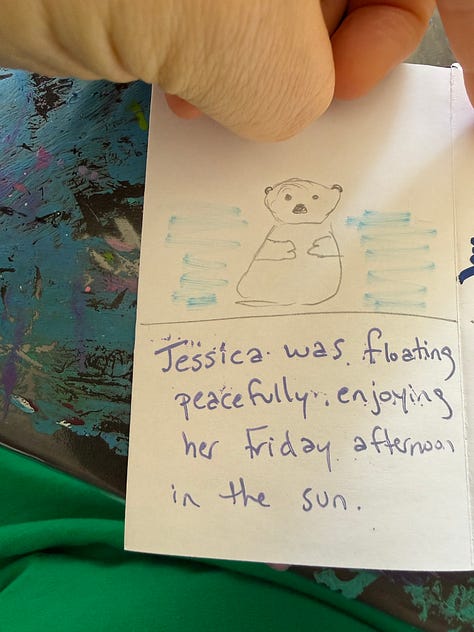 Jessica was floating
peacefully, enjoying
her Friday afternoon
in the sun.